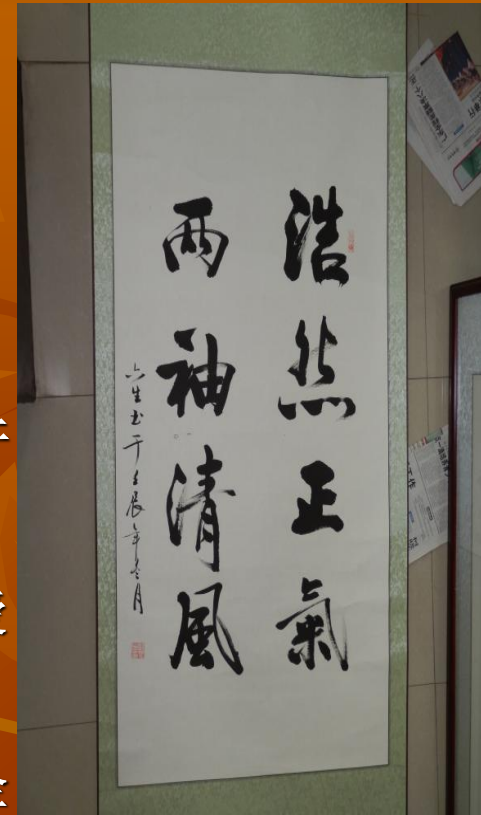 浩然正氣
两袖清風
六生书于壬辰年冬月